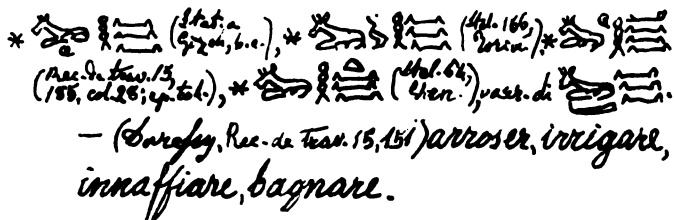 * (Stat. a Gizeh, b.e.), * (Stel. 166, Torin.), *
(Rec. de trav. 15, 155, col. 28; ep. tol.), * (Stel. 64, ), var. di .
— (Daressy, Rec. de Trav. 15, 151) arroser, irrigare,
innaffiare, bagnare.